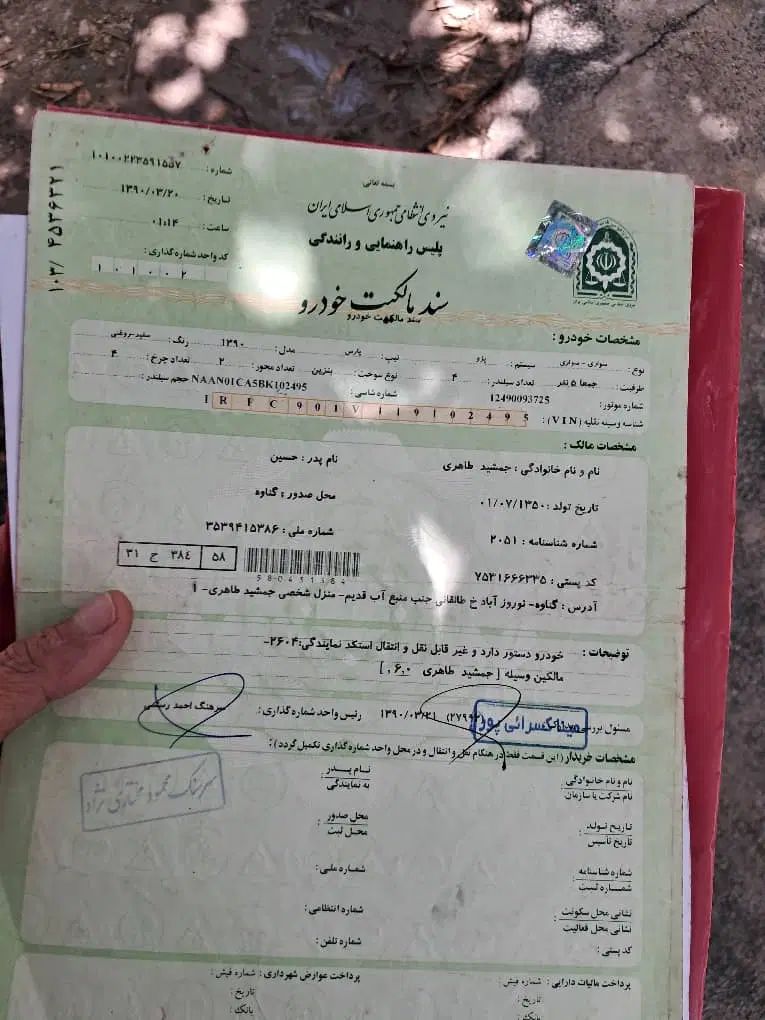 بسمه تعالی
نیروی انتظامی جمهوری اسلامی ایران
پلیس راهنمایی و رانندگی
سند مالکیت خودرو
سند مالکیت خودرو
شماره: ۱۰۱۰۰۲۲۳۵۹۱۵۵۷
تاریخ: ۱۳۹۰/۰۳/۲۰
ساعت: ۰۱:۱۴
کد واحد شماره گذاری:
۱۰۱۰۰۲
۱۰۳/ ۴۵۳۶۳۲۱
مشخصات خودرو:
نوع: سواری - سواری سیستم: پژو تیپ: پارس مدل: ۱۳۹۰ رنگ: سفید-روغنی
ظرفیت: جمعا ۵ نفر تعداد سیلندر: ۴ نوع سوخت: بنزین تعداد محور: ۲ تعداد چرخ: ۴
شماره موتور: 12490093725 شماره شاسی: NAAN01CA5BK102495 حجم سیلندر:
شناسه وسیله نقلیه (VIN): IRFC901V119102495
مشخصات مالک:
نام و نام خانوادگی: جمشید طاهری نام پدر: حسین
تاریخ تولد: ۰۱/۰۷/۱۳۵۰ محل صدور: گناوه
شماره شناسنامه: ۲۰۵۱ شماره ملی: ۳۵۳۹۴۱۵۳۸۶
کد پستی: ۷۵۳۱۶۶۶۳۳۵ 580451384 ۵۸ ۳۸۴ ج ۳۱
آدرس: گناوه- نوروز آباد خ طالقانی جنب منبع آب قدیم- منزل شخصی جمشید طاهری- ۱
توضیحات: خودرو دستور دارد و غیر قابل نقل و انتقال استکد نمایندگی:۲۶۰۴-
مالکین وسیله [ جمشید طاهری ۶,۰ , ]
مسئول بررسی (۲۷۹۹۴) ۱۳۹۰/۰۳/۲۱ رئیس واحد شماره گذاری: سرهنگ احمد
مشخصات خریدار (این قسمت فقط در هنگام نقل و انتقال و در محل واحد شماره گذاری تکمیل گردد):
نام و نام خانوادگی نام پدر
نام شرکت یا سازمان به نمایندگی
تاریخ تولد محل صدور
تاریخ تاسیس محل ثبت
شماره شناسنامه شماره ملی:
شماره ثبت
نشانی محل سکونت شماره انتظامی:
نشانی محل فعالیت
کد پستی: شماره تلفن:
پرداخت مالیات دارایی: شماره فیش: پرداخت عوارض شهرداری: شماره فیش:
تاریخ: تاریخ:
بانک: بانک: